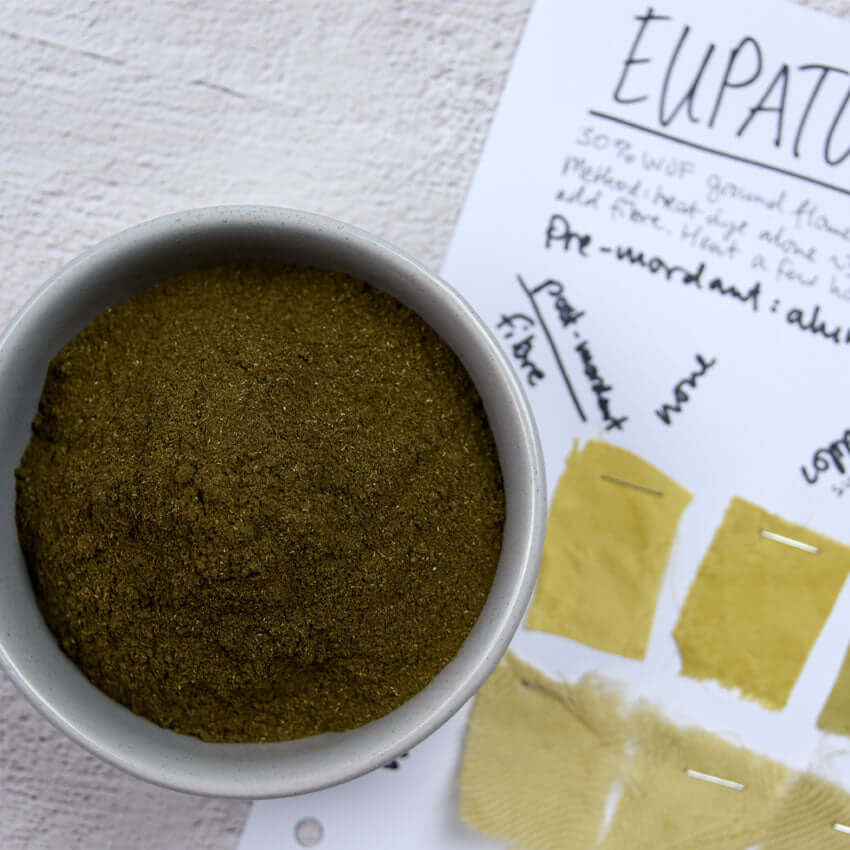 EUPATO
30% WOF ground flowe
Method: heat dye alone
add fibre. Heat a few
Pre-mordant: alum
post-mordant
fibre
none
copp